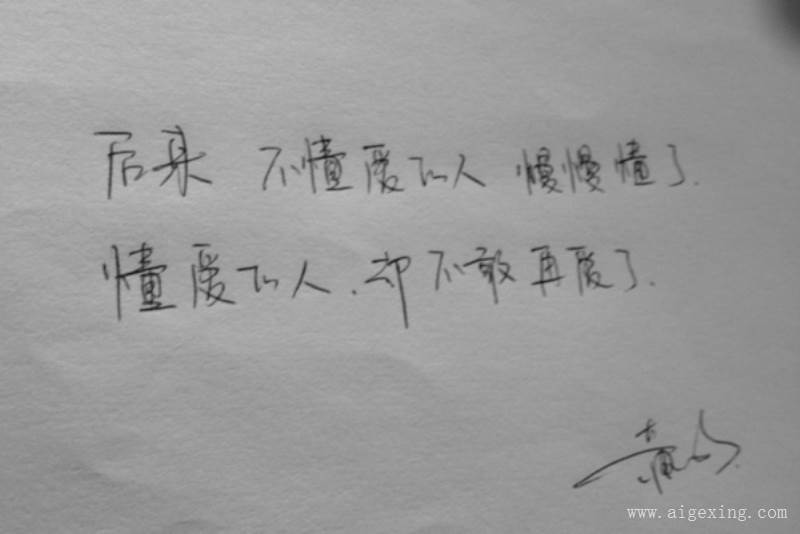 后来 不懂爱的人 慢慢懂了.
懂爱的人.却不敢再爱了.
www.aigexing.com